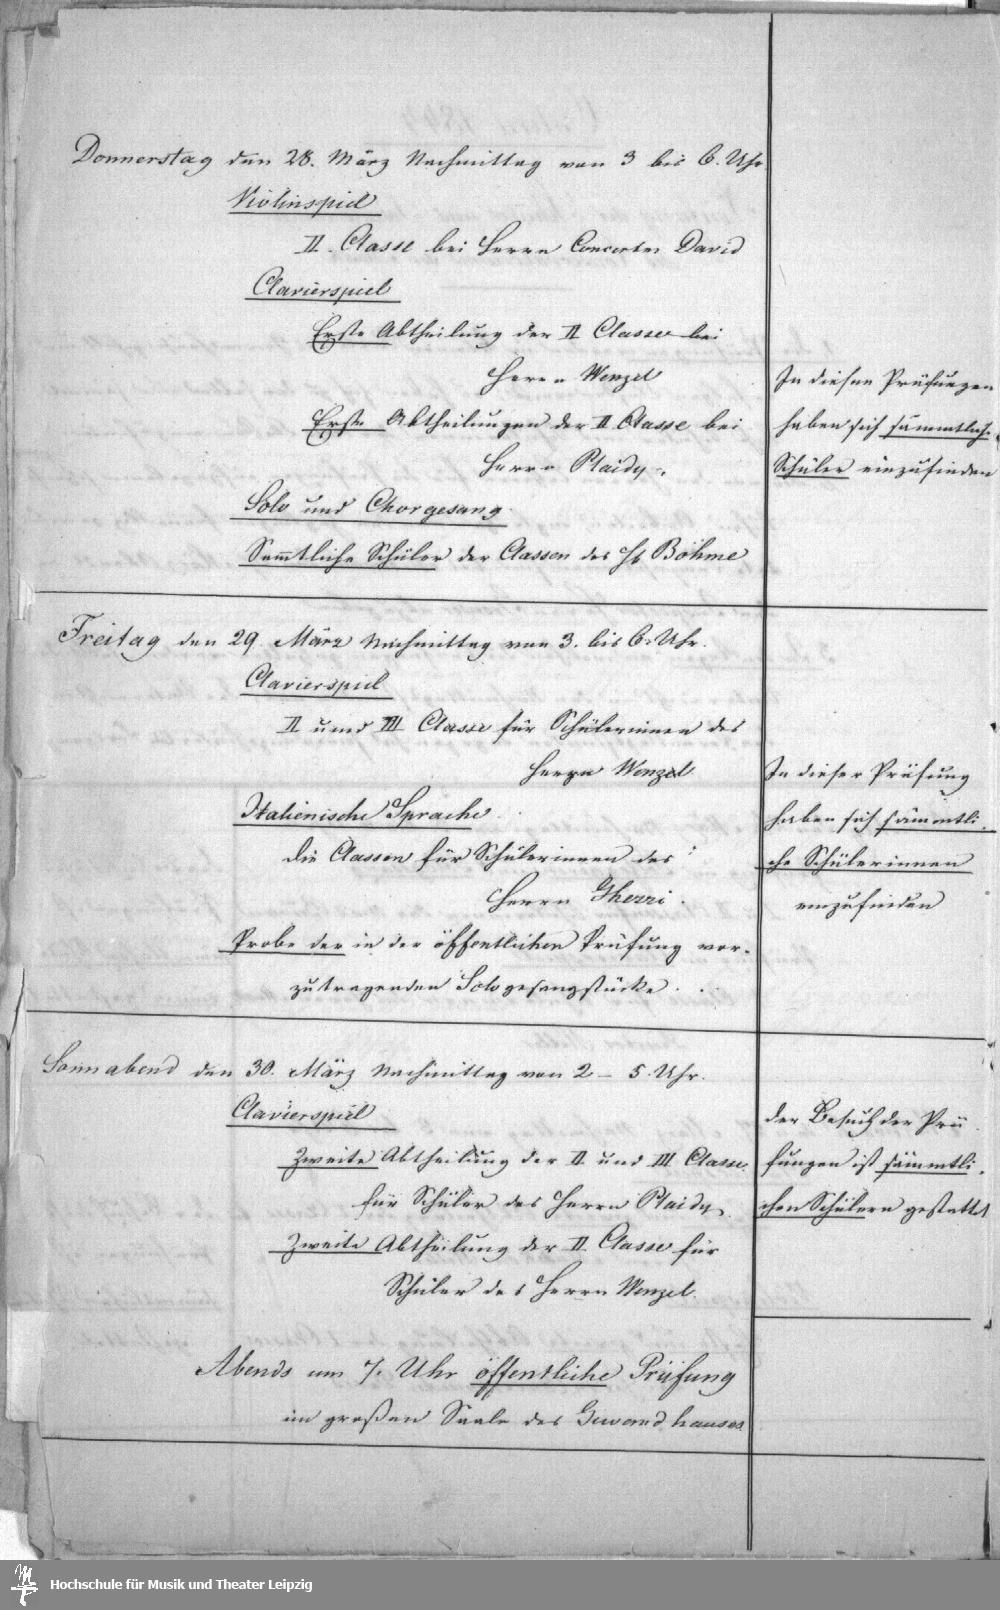 Donnerstag den 28. März Nachmittag von 3 bis 6. Uhr
Violinspiel
II. Classe bei Herrn Concertm David
Clavierspiel
Erste Abtheilung der II Classe bei
Herrn Wenzel
Erste Abtheilungen der II Classe bei
Herrn Plaidy.
Solo und Chorgesang.
Sammtliche Schüler der Classen des H Böhme
In diesen Prüfungen
haben sich sämmtlich.
Schüler einzufinden
Freitag den 29 März Nachmittag von 3. bis 6. Uhr.
Clavierspiel
II und III Classe für Schülerinnen des
Herrn Wenzel
Italienische Sprache
die Classen für Schülerinnen des
Herrn Gherri.
Probe der in der öffentlichen Prüfung vor-
zutragenden Sologesangstücke.
In dieser Prüfung
haben sich sämmtli-
che Schülerinnen
einzufinden
Sonnabend den 30. März Nachmittag von 2 – 5. Uhr.
Clavierspiel
Zweite Abtheilung der II und III Classe.
für Schüler des Herrn Plaidy.
Zweite Abtheilung der II. Classe für
Schüler des Herrn Wenzel.
der Besuch der Prü-
fungen ist sämmtli-
chen Schülern gestattet
Abends um 7. Uhr öffentliche Prüfung
im großen Saale des Gewandhauses
Hochschule für Musik und Theater Leipzig